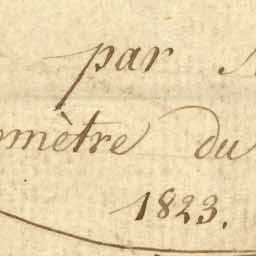 par
omètre du
1823.